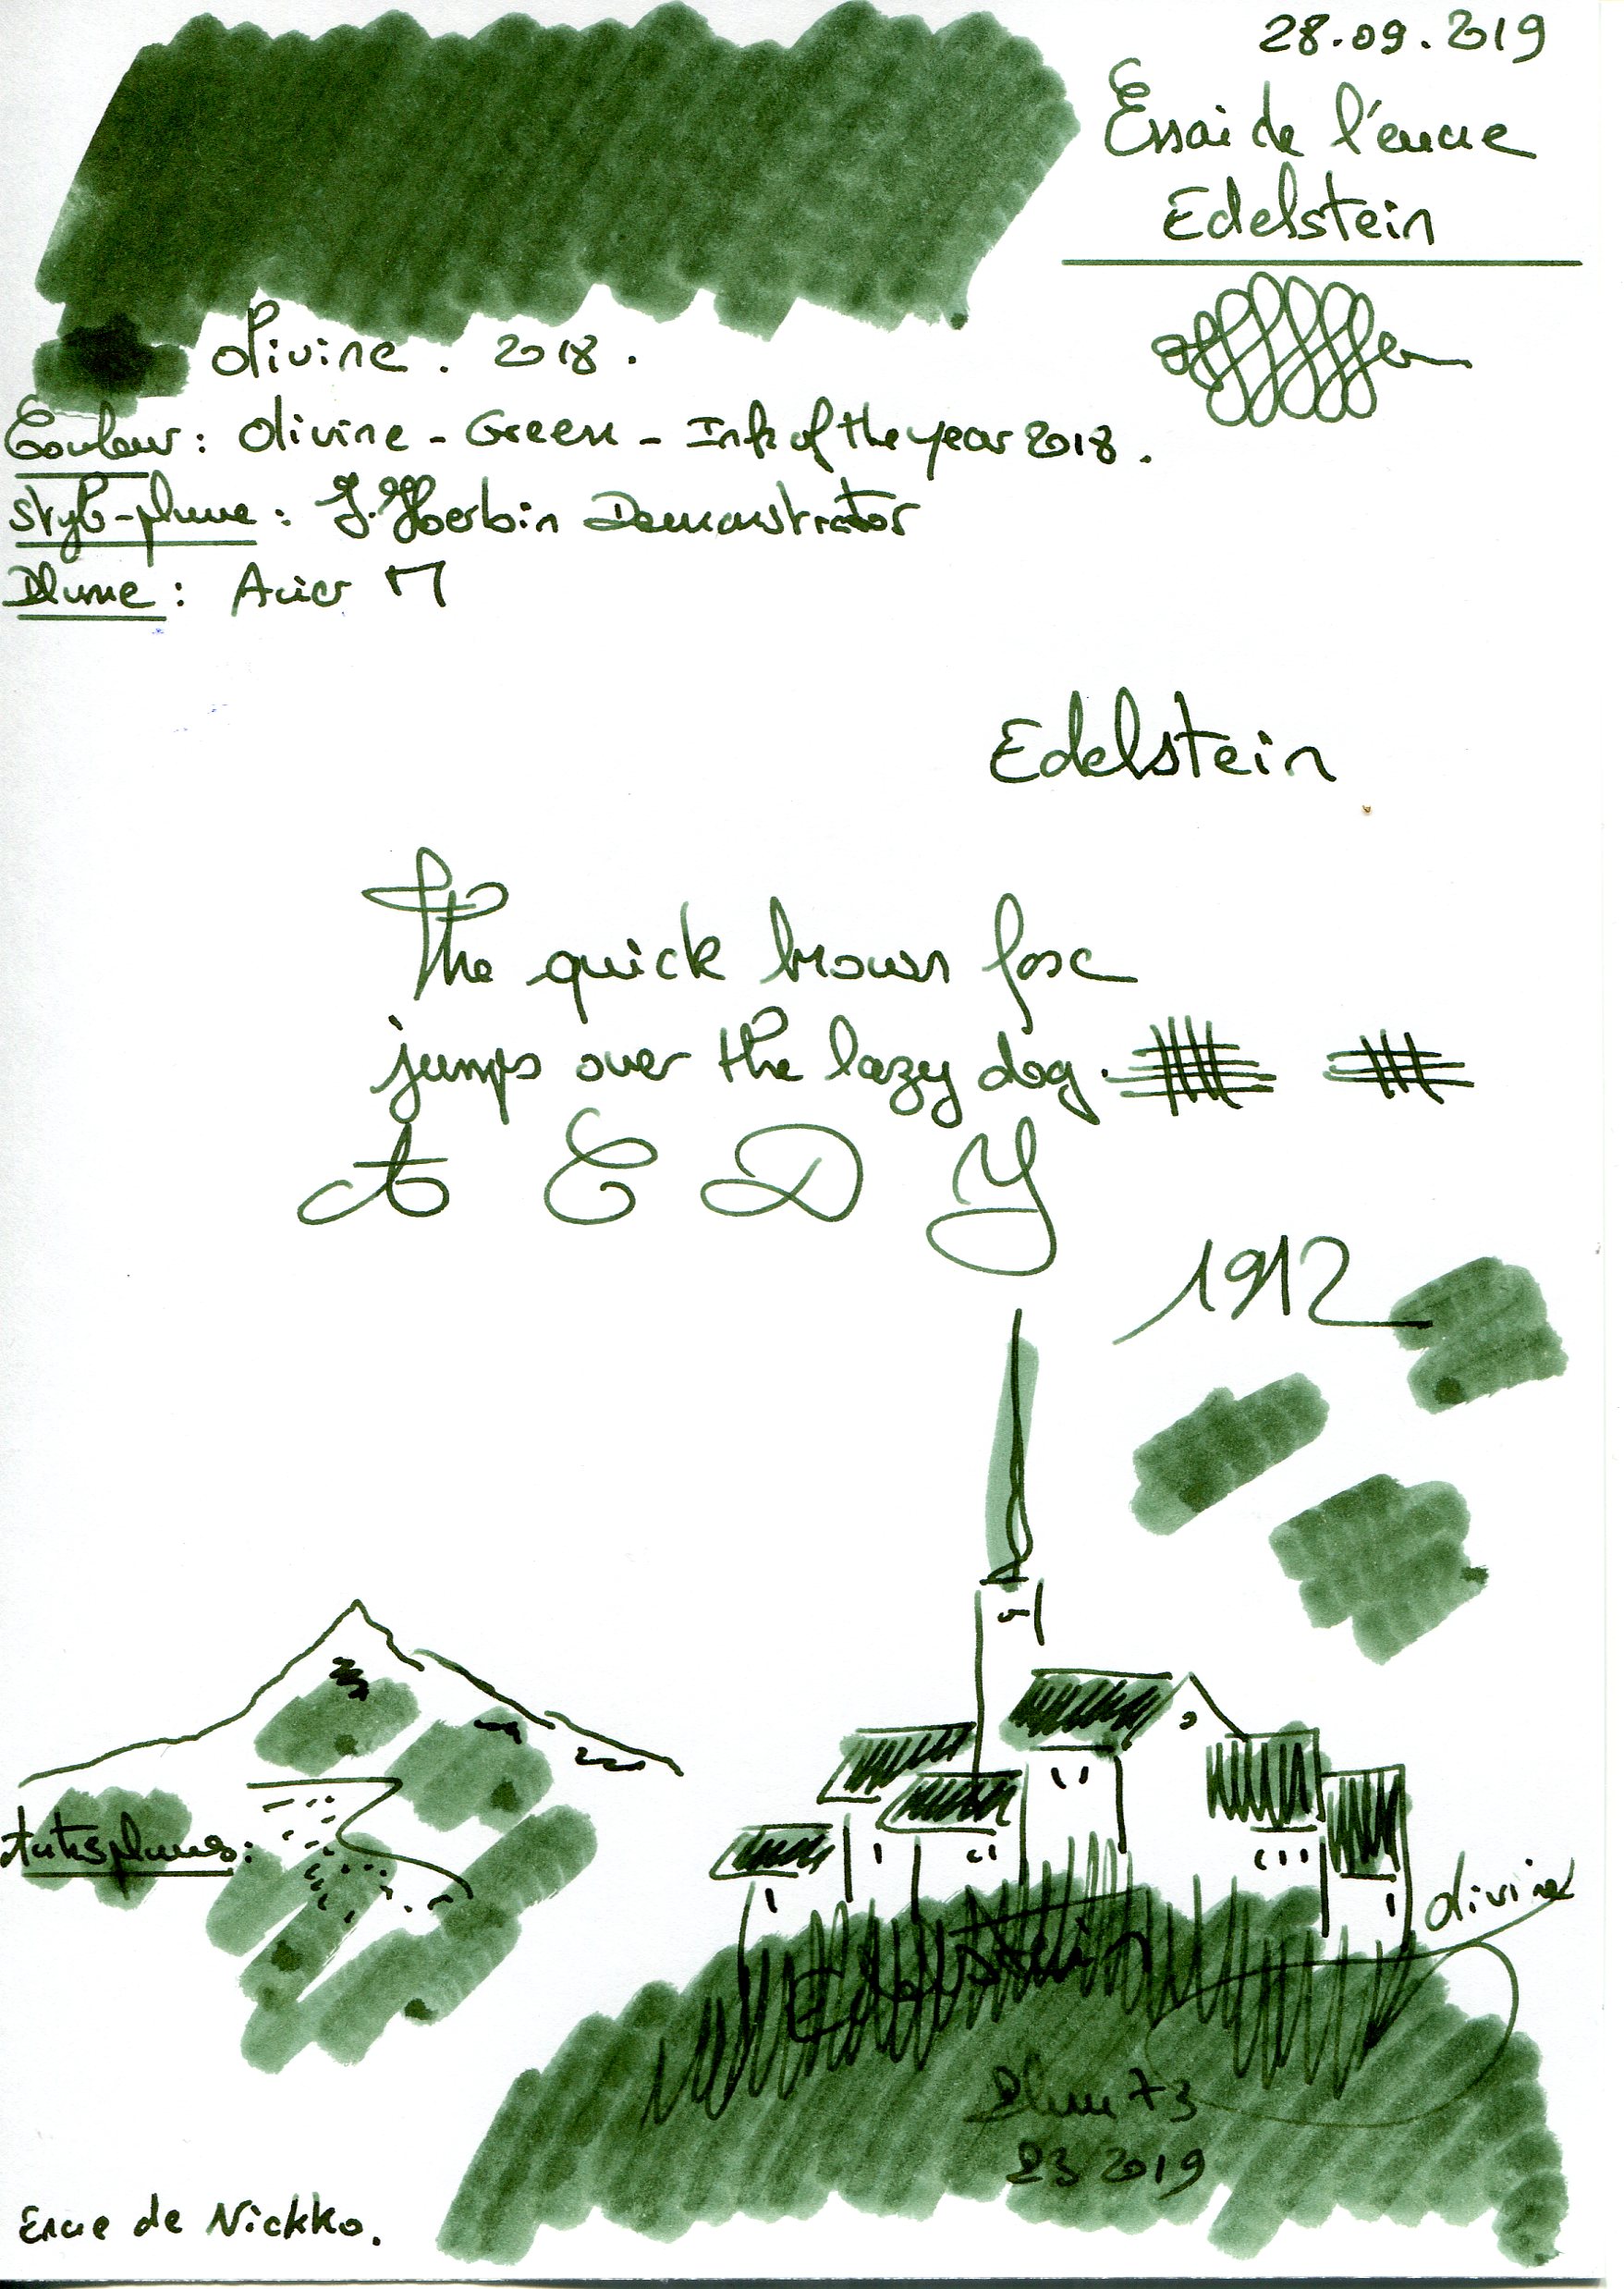 28.09.2019
Essai de l'encre
Edelstein
Olivine. 2018.
Couleur: Olivine - Green - Ink of the year 2018.
Stylo-plume: J. Herbin Demonstrator
Plume: Acier M
Edelstein
The quick brown fox
jumps over the lazy dog.
A E D Y
1912
Autres plumes:
Olivine
Edelstein
Plum 73
23 2019
Encre de Nickko.